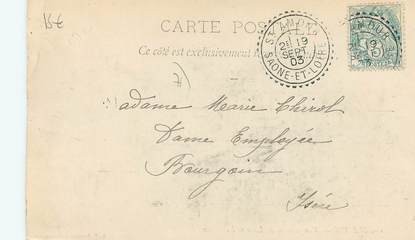 15€
CARTE POSTALE
Ce côté est exclusivement
ST AMOUR
2E 19
SEPT
03
SAONE-ET-LOIRE
adame Marie Chirol
Dame Employée
Bourgoin
Isère